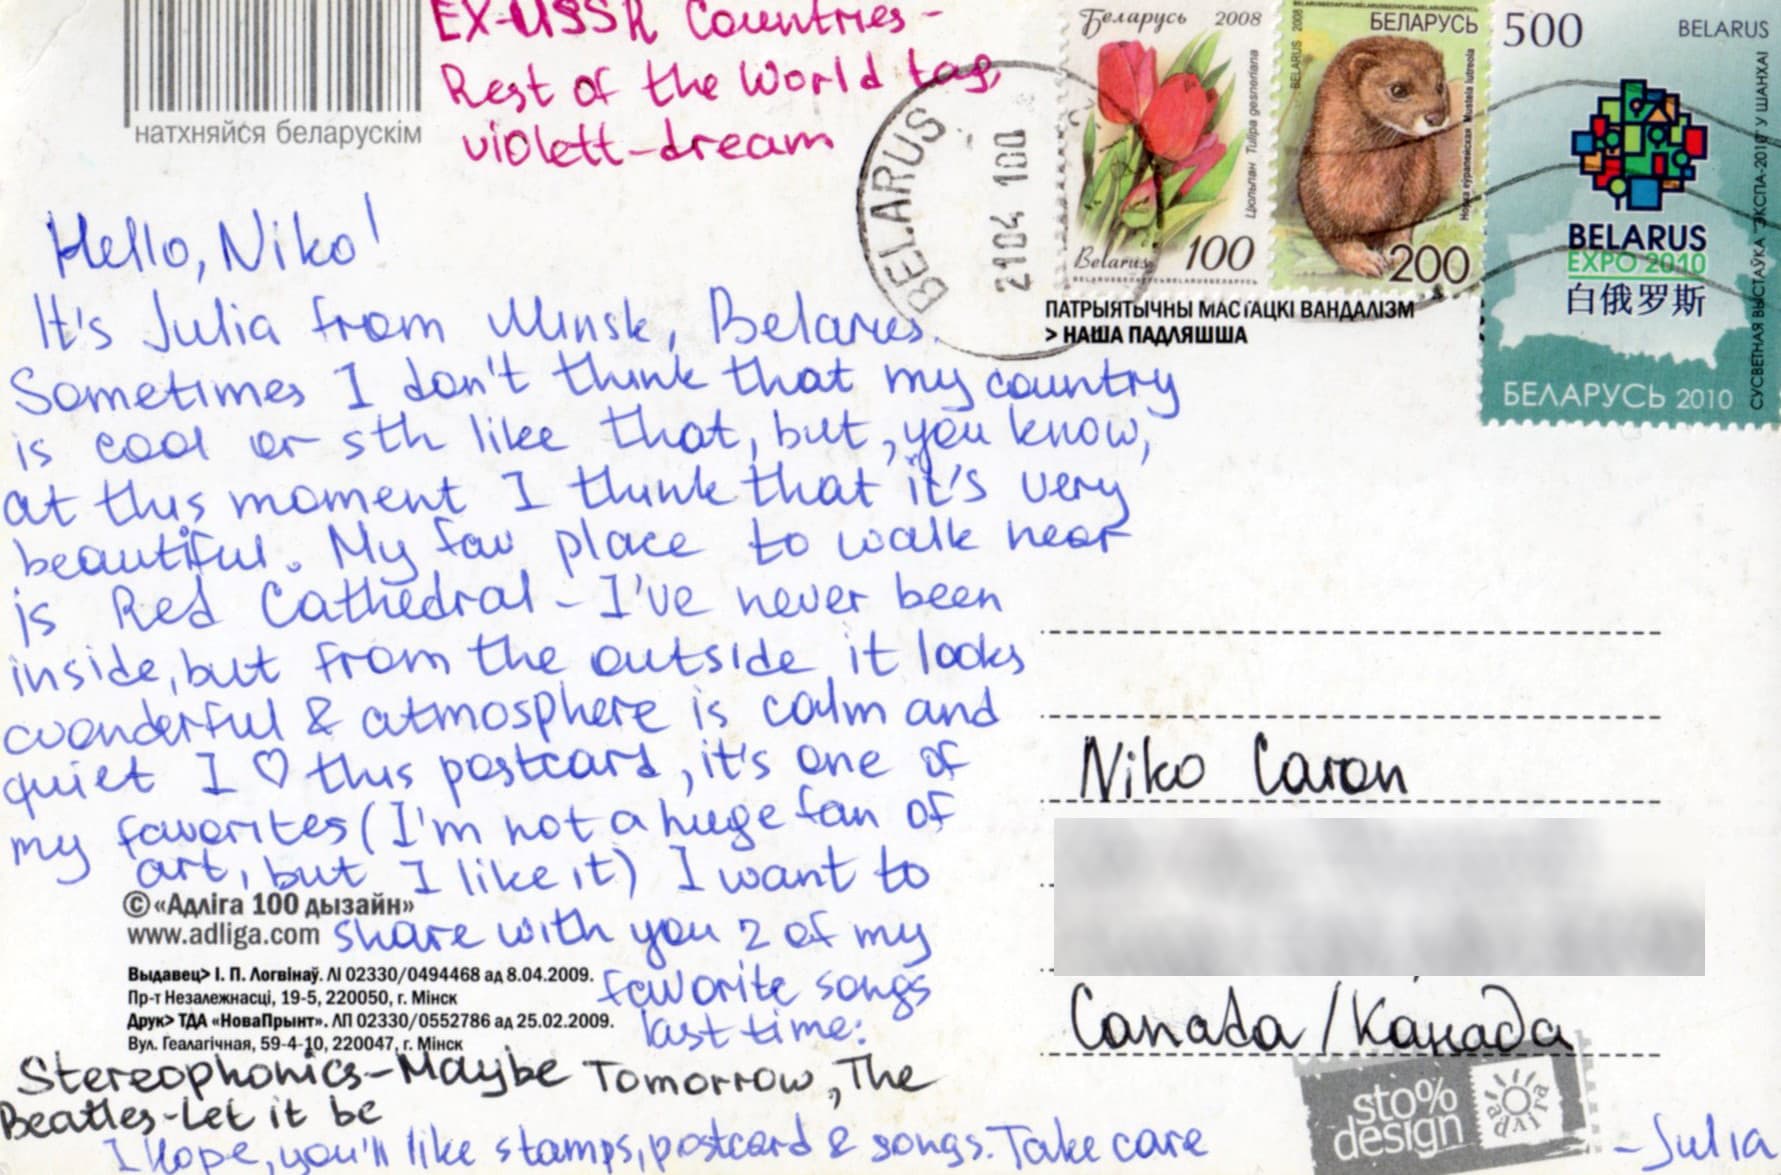 EX-USSR Countries -
Rest of the World tag
violett-dream
натхняйся беларускім
Hello, Niko!
It's Julia from Minsk, Belarus.
Sometimes I don't think that my country
is cool or sth like that, but, you know,
at this moment I think that it's very
beautiful. My fav place to walk near
is Red Cathedral - I've never been
inside, but from the outside it looks
wonderful & atmosphere is calm and
quiet I ♡ this postcard, it's one of
my favorites (I'm not a huge fan of
art, but I like it) I want to
share with you 2 of my
favorite songs
last time:
Stereophonics-Maybe Tomorrow, The
Beatles-Let it be
I hope, you'll like stamps, postcard & songs. Take care
-Julia
©«Адліга 100 дызайн»
www.adliga.com
Выдавец> І. П. Логвінаў. ЛІ 02330/0494468 ад 8.04.2009.
Пр-т Незалежнасці, 19-5, 220050, г. Мінск
Друк> ТДА «НоваПрынт». ЛП 02330/0552786 ад 25.02.2009.
Вул. Геалагічная, 59-4-10, 220047, г. Мінск
BELARUS
2104 100
Беларусь 2008
Цюльпан Tulipa gesneriana
Belarus 100
БЕЛАРУСЬ
BELARUS 2008
Норка еўрапейская Mustela lutreola
200
500 BELARUS
BELARUS
EXPO 2010
白俄罗斯
БЕЛАРУСЬ 2010
СУСВЕТНАЯ ВЫСТАЎКА "ЭКСПА-2010" У ШАНХАІ
ПАТРЫЯТЫЧНЫ МАСТАЦКІ ВАНДАЛІЗМ
> НАША ПАДЛЯШША
Niko Caron
Canada/Канада
sto%
design